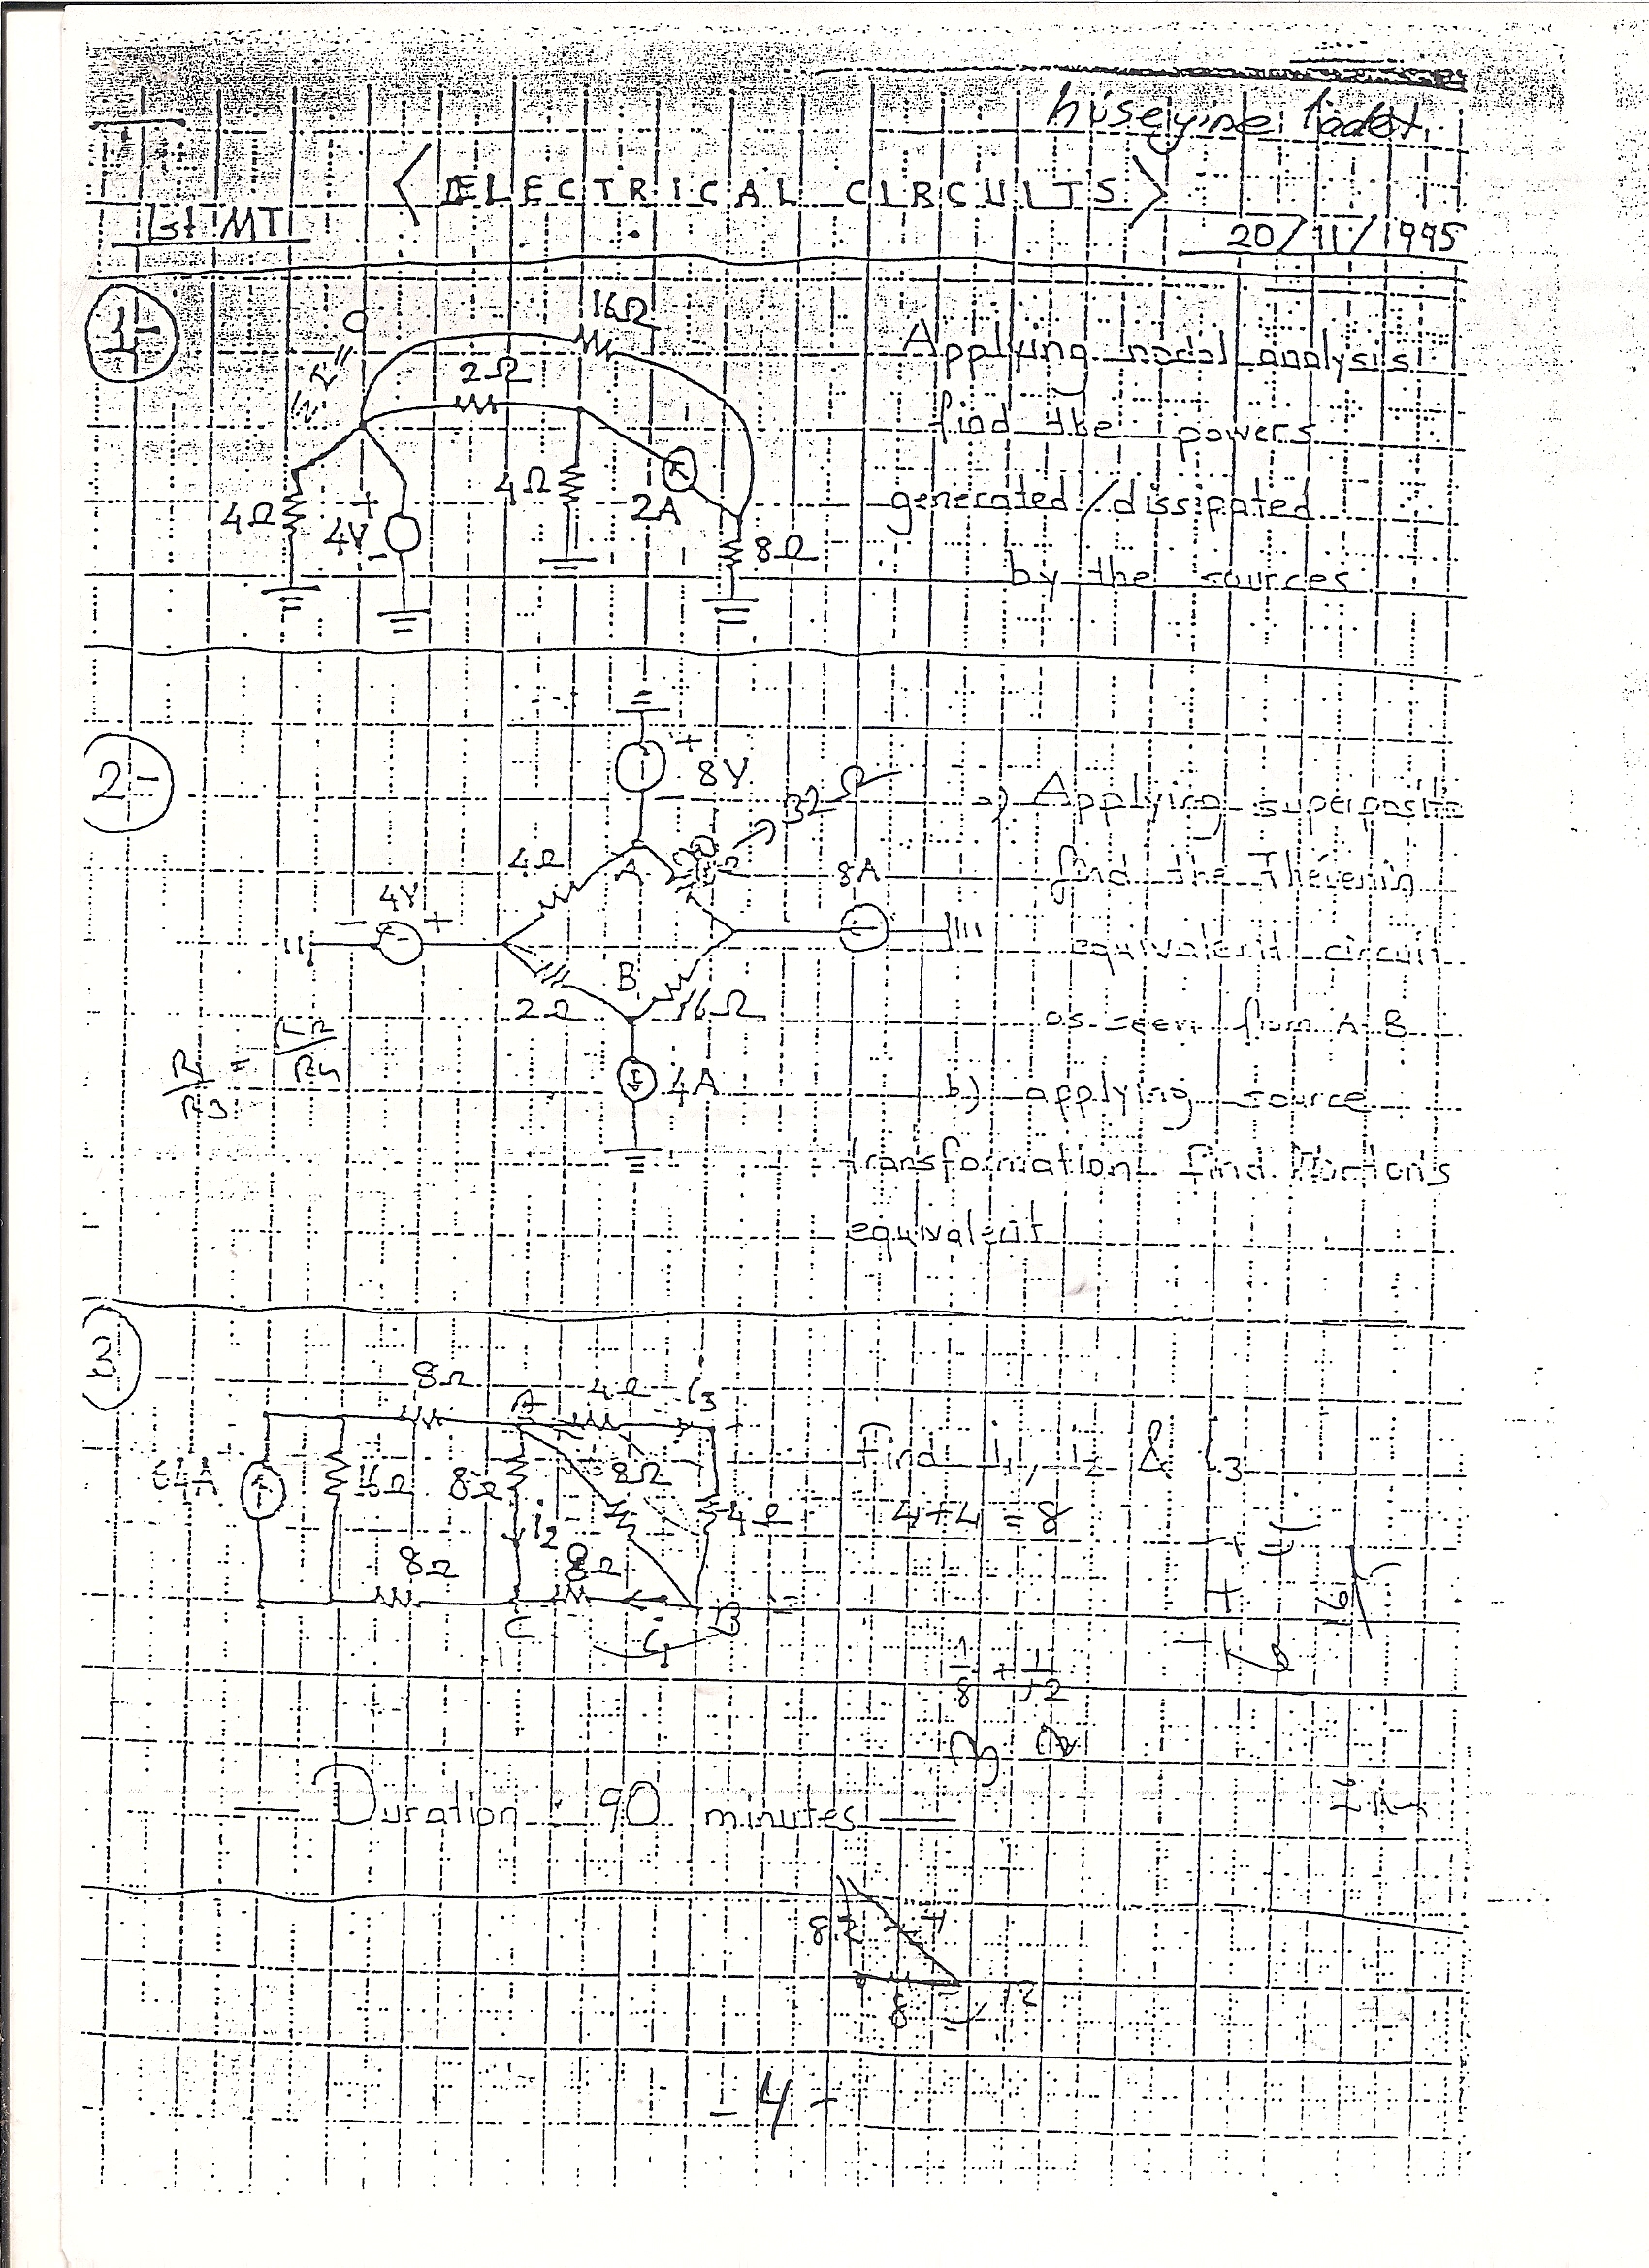 hüseyine
< ELECTRICAL CIRCUITS >
1st MT
20/11/1995
1-
16Ω
2Ω
4Ω
4V
+
-
4Ω
2A
8Ω
Applying nodal analysis
find the powers
generated/dissipated
by the sources
2-
8V
+
32Ω
4Ω
A
8A
4V
- +
B
2Ω
16Ω
4A
a) Applying superpositio
find the Thévenin
equivalent circuit
as seen from A-B
b) applying source
transformation find Norton's
equivalent
3
8Ω
A
4Ω
i3
16Ω
8Ω
8Ω
4Ω
i2
8Ω
8Ω
C
i1
B
Find i1, i2 & i3
4+4=8
1/8 + 1/12
Duration : 90 minutes
8
- 4 -